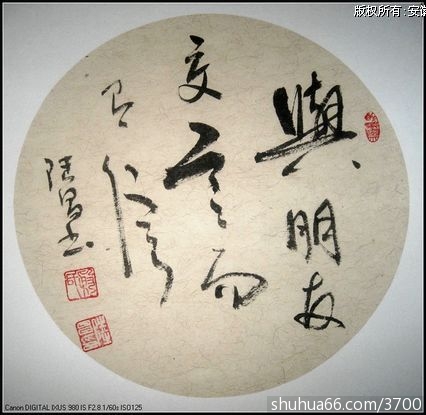 版权所有:安
與朋友
交言而
有信
陸昌书
Canon DIGITAL IXUS 980 IS F2.8 1/60s ISO125
shuhua66.com/3700